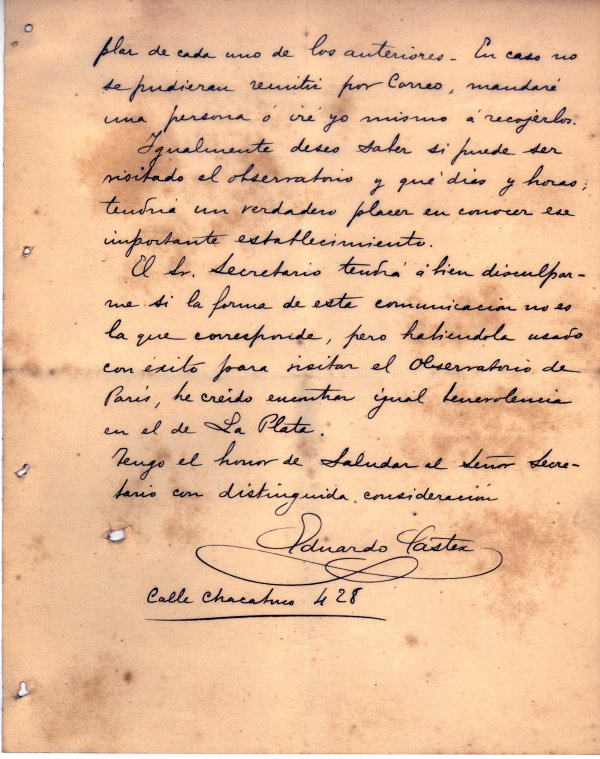 plar de cada uno de los anteriores. En caso no
se pudieran remitir por Correo, mandaré
una persona ó iré yo mismo á recojerlos.
Igualmente deseo saber si puede ser
visitado el observatorio y qué dias y horas;
tendria un verdadero placer en conocer ese
importante establecimiento.
El Sr. Secretario tendrá á bien disculpar-
me si la forma de esta comunicacion no es
la que corresponde, pero habiendola usado
con éxito para visitar el Observatorio de
París, he creido encontrar igual benevolencia
en el de La Plata.
Tengo el honor de saludar al Señor Secre-
tario con distinguida consideración
Eduardo Castex
Calle Chacabuco 428